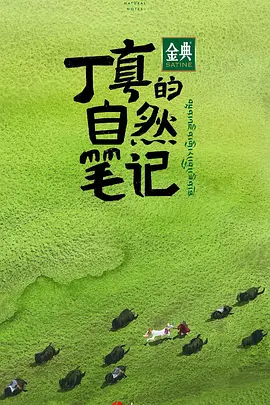 NATURAL
NOTES
金典
SATINE
丁真的
自然
笔记